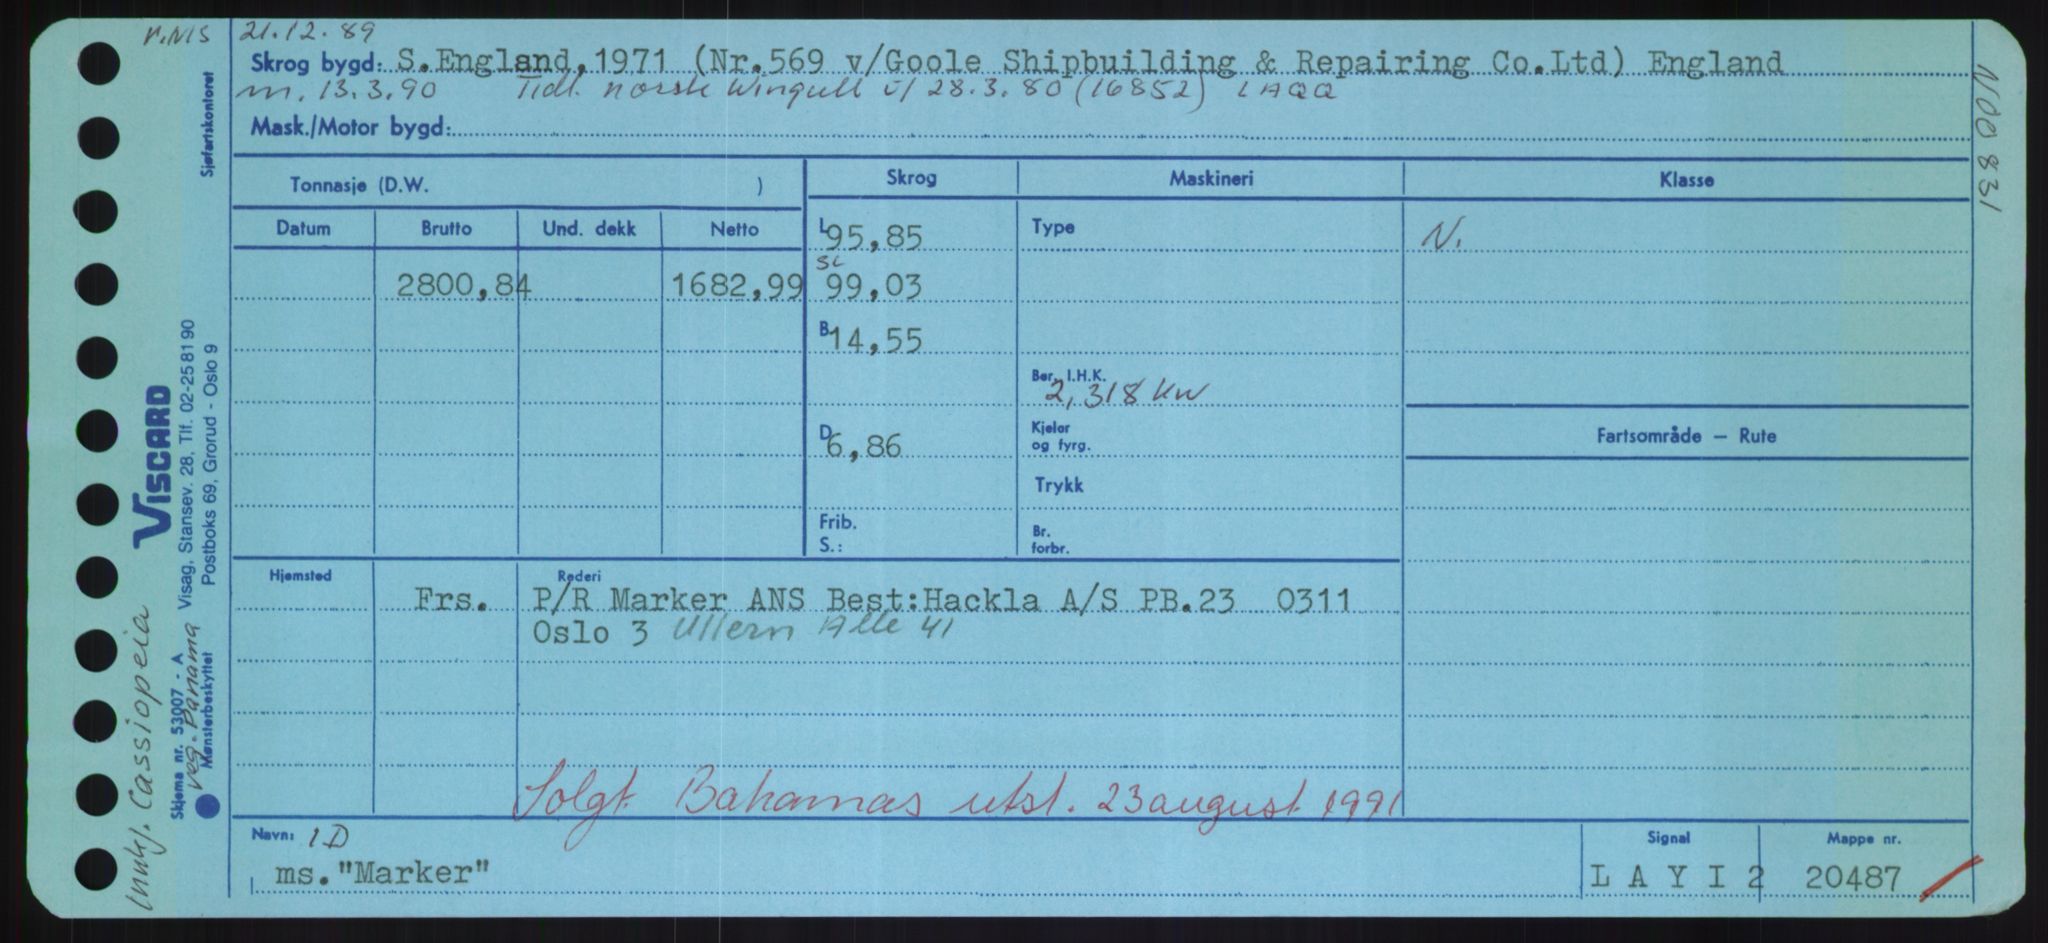 r.NIS 21.12.89
Skrog bygd: S.England,1971 (Nr.569 v/Goole Shipbuilding & Repairing Co.Ltd) England
m. 13.3.90 Tidl. norske Wingull u/ 28.3.80 (16852) LAQQ
Mask./Motor bygd:
Tonnasje (D.W. )
Skrog
Maskineri
Klasse
Datum Brutto Und. dekk Netto
L 95,85
Type
N.
2800,84 1682,99
SL 99,03
B 14,55
Ber. I.H.K.
2,318 KW
Kjeler
og fyrg.
Fartsområde — Rute
D 6,86
Trykk
Frib.
S.:
Br.
forbr.
Hjemsted
Rederi
Frs. P/R Marker ANS Best:Hackla A/S PB.23 0311
Oslo 3 Ullern Alle 41
Solgt Bahamas utsl. 23 august 1991
Navn: 1D
ms."Marker"
Signal
L A Y I 2
Mappe nr.
20487
N00831
Sjøfartskontoret
VISCARD
Visag, Stansev. 28, Tlf. 02-25 81 90
Postboks 69, Grorud - Oslo 9
Skjema nr. 53007 - A
Mønsterbeskyttet
Innkj. Cassiopeia
reg. Panama